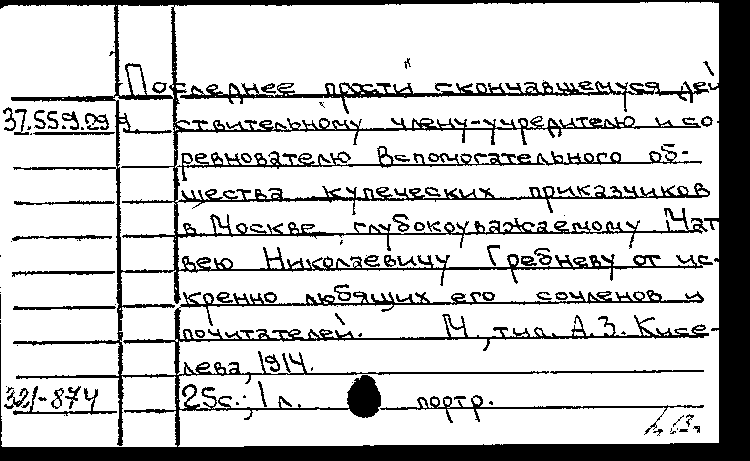 Последнее прости скончавшемуся дей
37.55.9.29 ствительному члену-учредителю и со-
ревнователю Вспомогательного об-
щества купеческих приказчиков
в Москве глубокоуважаемому Мат
вею Николаевичу Гребневу от ис-
кренно любящих его сочленов и
почитателей. М., тип. А.З. Кисе-
лева, 1914.
321-874 25с.; 1 л. портр.